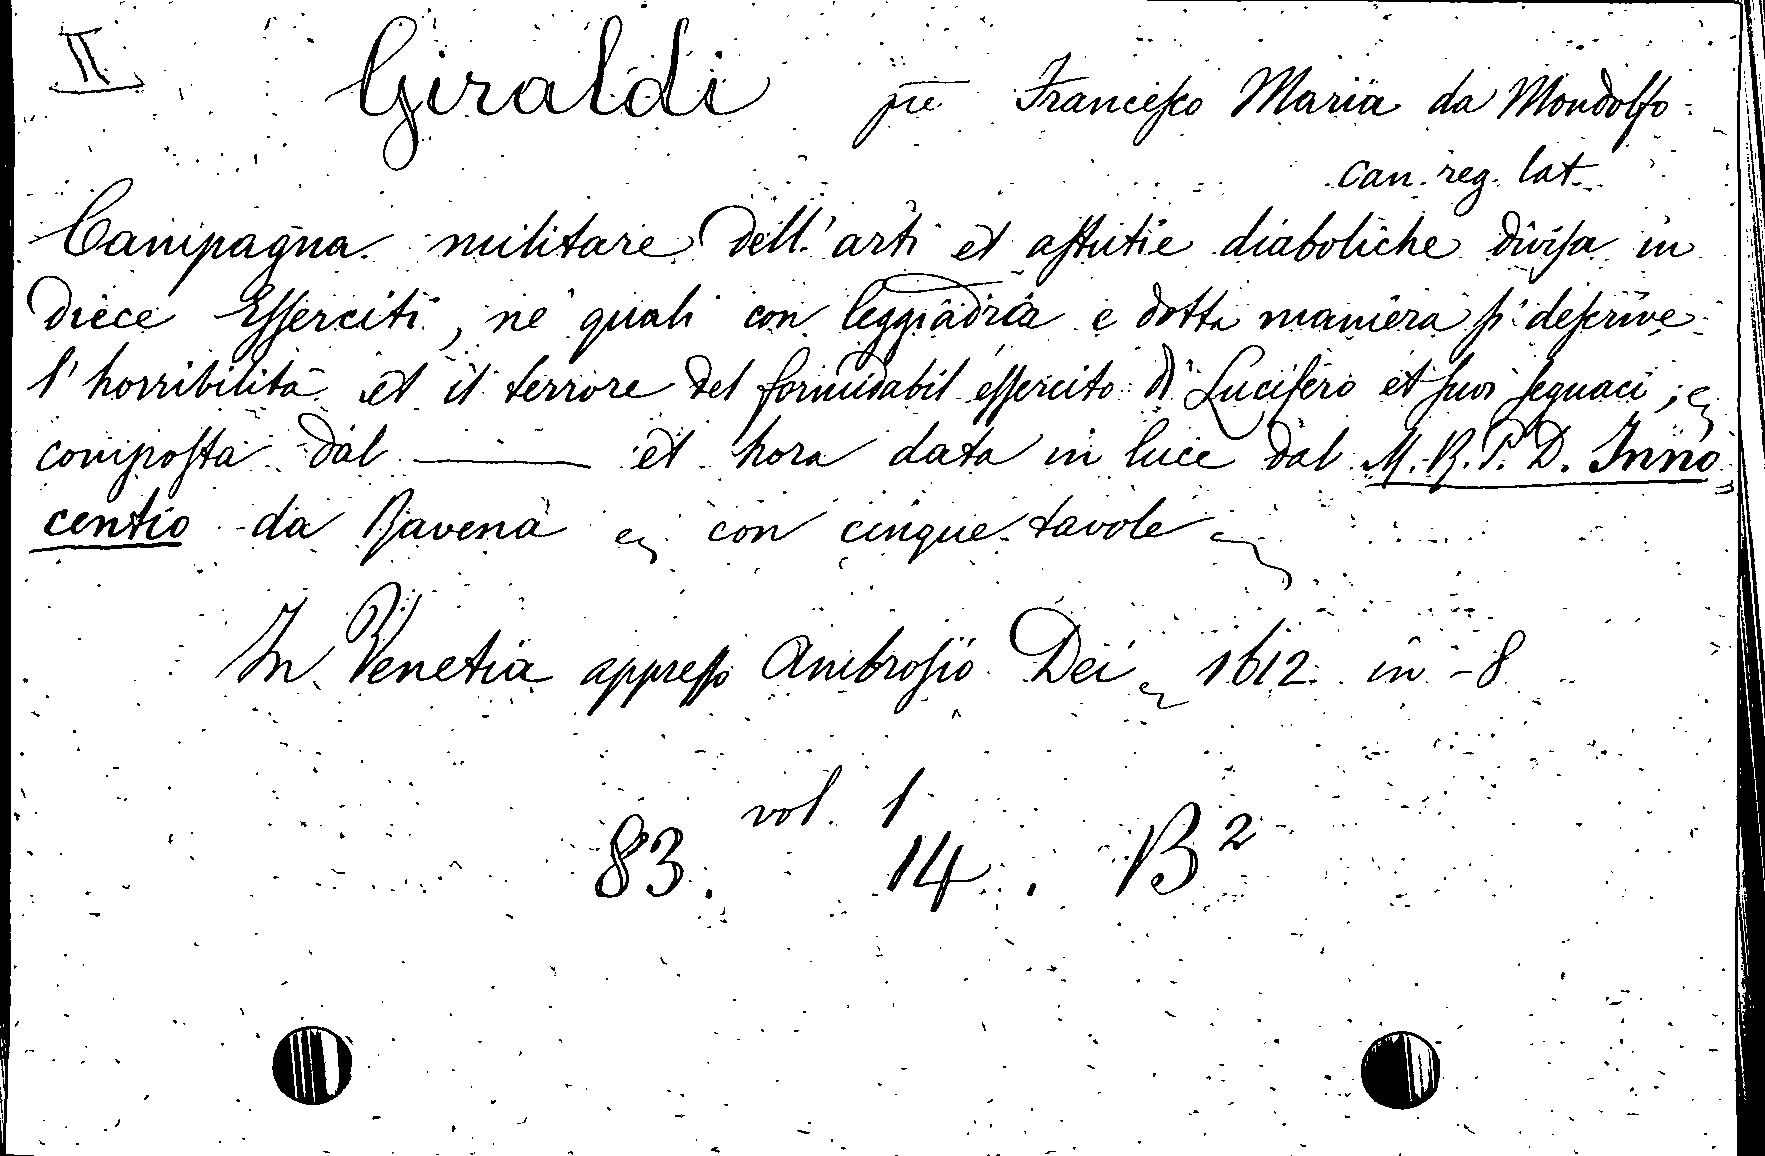 II
Giraldi pre Francesco Maria da Mondolfo
can. reg. lat.
Campagna militare dell' arti et astutie diaboliche divisa in
diece Esserciti, ne quali con leggiadria e dotta maniera si descrive
l' horribilità et il terrore del formidabil essercito di Lucifero et suoi seguaci ;
composta dal —— et hora data in luce dal M. R. P. D. Inno
centio da Ravena con cinque tavole
In Venetia appresso Ambrosio Dei 1612 in -8
vol. 1
83. 14. B²